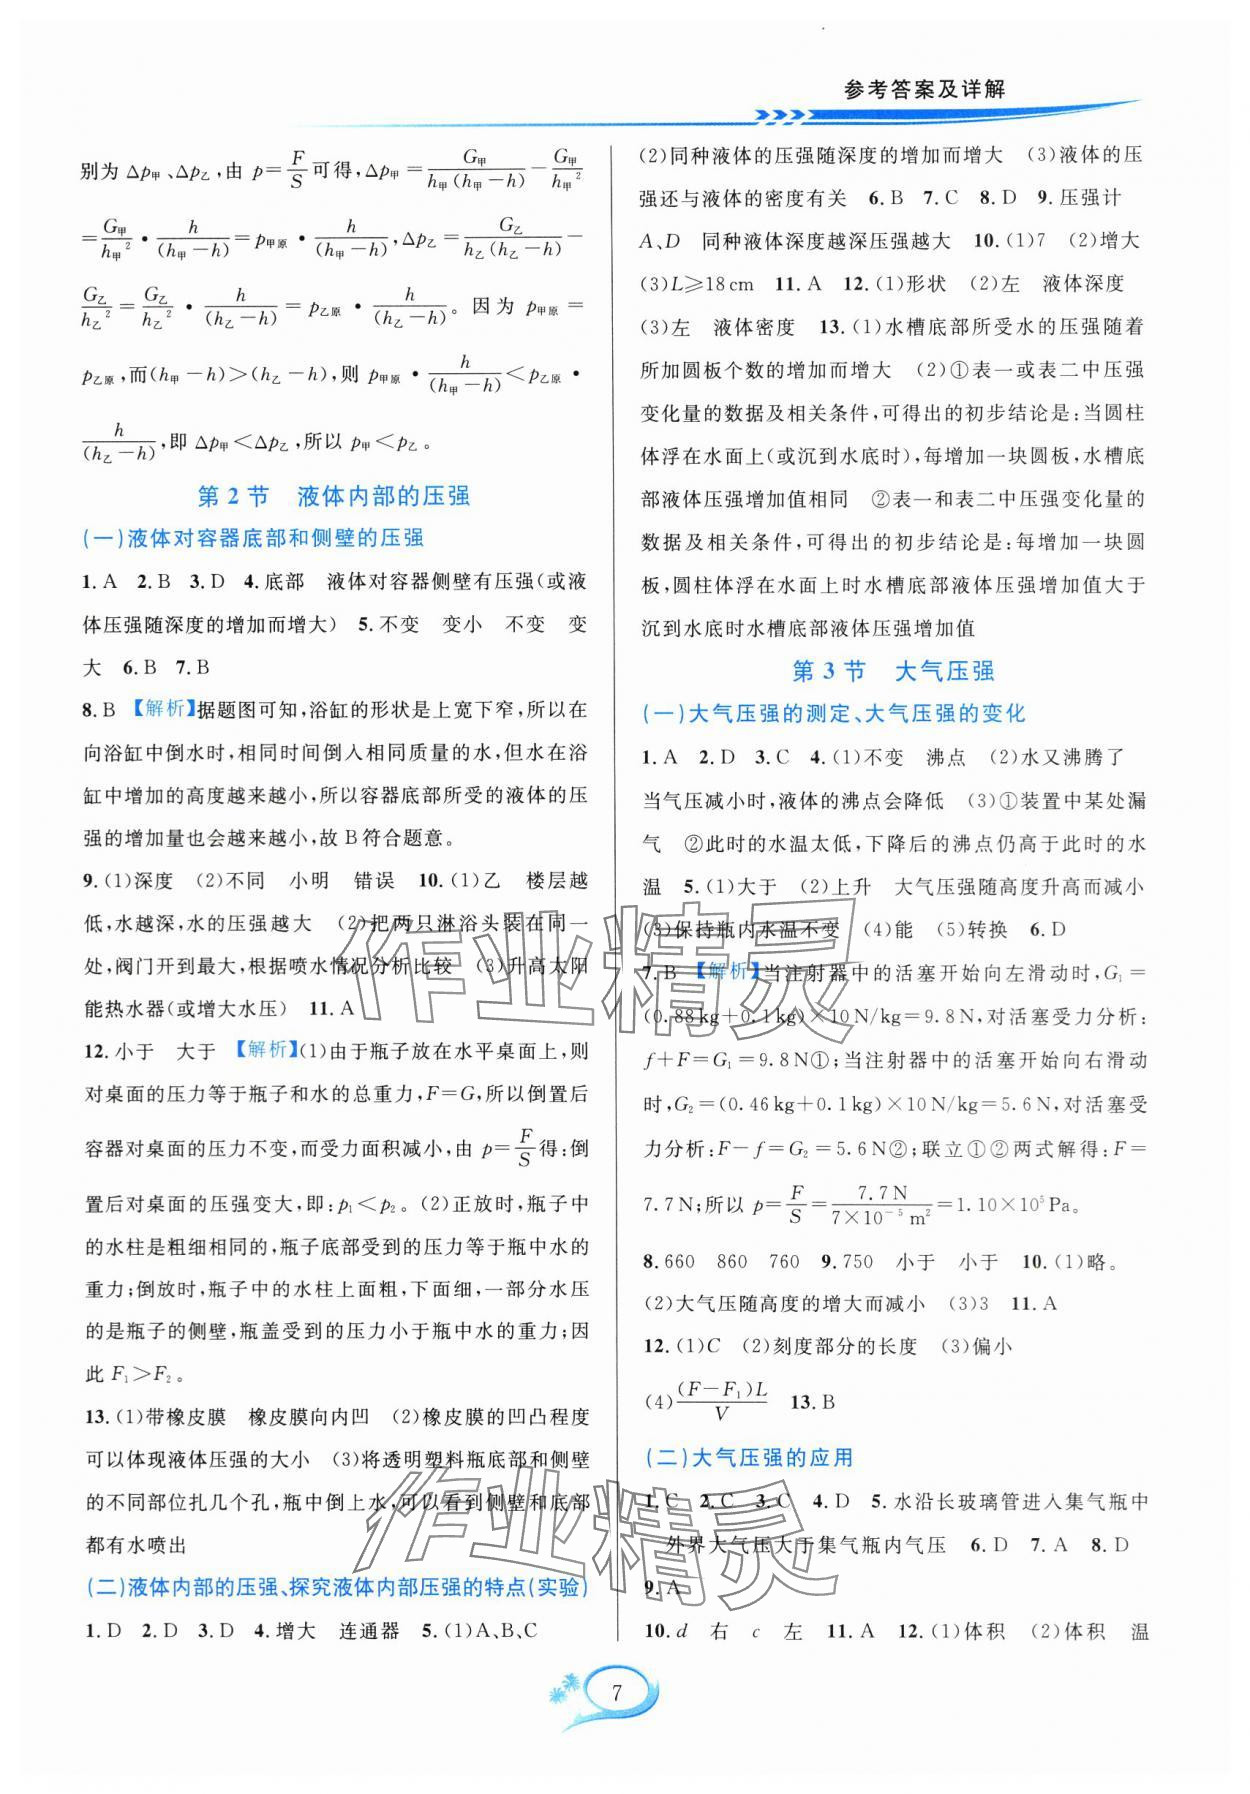 参考答案及详解
别为 Δp甲、Δp乙,由 p=F/S可得,Δp甲=G甲/h甲(h甲-h)-G甲/h甲²
=G甲/h甲²·h/(h甲-h)=p甲原·h/(h甲-h),Δp乙=G乙/h乙(h乙-h)-
G乙/h乙²=G乙/h乙²·h/(h乙-h)=p乙原·h/(h乙-h)。因为 p甲原=
p乙原,而(h甲-h)>(h乙-h),则 p甲原·h/(h甲-h)<p乙原·
h/(h乙-h),即 Δp甲<Δp乙,所以 p甲<p乙。
第2节 液体内部的压强
(一)液体对容器底部和侧壁的压强
1.A 2.B 3.D 4.底部 液体对容器侧壁有压强(或液
体压强随深度的增加而增大) 5.不变 变小 不变 变
大 6.B 7.B
8.B 【解析】据题图可知,浴缸的形状是上宽下窄,所以在
向浴缸中倒水时,相同时间倒入相同质量的水,但水在浴
缸中增加的高度越来越小,所以容器底部所受的液体的压
强的增加量也会越来越小,故B符合题意。
9.(1)深度 (2)不同 小明 错误 10.(1)乙 楼层越
低,水越深,水的压强越大 (2)把两只淋浴头装在同一
处,阀门开到最大,根据喷水情况分析比较 (3)升高太阳
能热水器(或增大水压) 11.A
12.小于 大于 【解析】(1)由于瓶子放在水平桌面上,则
对桌面的压力等于瓶子和水的总重力,F=G,所以倒置后
容器对桌面的压力不变,而受力面积减小,由 p=F/S得:倒
置后对桌面的压强变大,即:p₁<p₂。(2)正放时,瓶子中
的水柱是粗细相同的,瓶子底部受到的压力等于瓶中水的
重力;倒放时,瓶子中的水柱上面粗,下面细,一部分水压
的是瓶子的侧壁,瓶盖受到的压力小于瓶中水的重力;因
此 F₁>F₂。
13.(1)带橡皮膜 橡皮膜向内凹 (2)橡皮膜的凹凸程度
可以体现液体压强的大小 (3)将透明塑料瓶底部和侧壁
的不同部位扎几个孔,瓶中倒上水,可以看到侧壁和底部
都有水喷出
(二)液体内部的压强、探究液体内部压强的特点(实验)
1.D 2.D 3.D 4.增大 连通器 5.(1)A、B、C
(2)同种液体的压强随深度的增加而增大 (3)液体的压
强还与液体的密度有关 6.B 7.C 8.D 9.压强计
A、D 同种液体深度越深压强越大 10.(1)7 (2)增大
(3)L≥18cm 11.A 12.(1)形状 (2)左 液体深度
(3)左 液体密度 13.(1)水槽底部所受水的压强随着
所加圆板个数的增加而增大 (2)①表一或表二中压强
变化量的数据及相关条件,可得出的初步结论是:当圆柱
体浮在水面上(或沉到水底时),每增加一块圆板,水槽底
部液体压强增加值相同 ②表一和表二中压强变化量的
数据及相关条件,可得出的初步结论是:每增加一块圆
板,圆柱体浮在水面上时水槽底部液体压强增加值大于
沉到水底时水槽底部液体压强增加值
第3节 大气压强
(一)大气压强的测定、大气压强的变化
1.A 2.D 3.C 4.(1)不变 沸点 (2)水又沸腾了
当气压减小时,液体的沸点会降低 (3)①装置中某处漏
气 ②此时的水温太低,下降后的沸点仍高于此时的水
温 5.(1)大于 (2)上升 大气压强随高度升高而减小
(3)保持瓶内水温不变 (4)能 (5)转换 6.D
7.B 【解析】当注射器中的活塞开始向左滑动时,G₁=
(0.88kg+0.1kg)×10N/kg=9.8N,对活塞受力分析:
f+F=G₁=9.8N①;当注射器中的活塞开始向右滑动
时,G₂=(0.46kg+0.1kg)×10N/kg=5.6N,对活塞受
力分析:F-f=G₂=5.6N②;联立①②两式解得:F=
7.7N;所以 p=F/S=7.7N/7×10⁻⁵m²=1.10×10⁵Pa。
8.660 860 760 9.750 小于 小于 10.(1)略。
(2)大气压随高度的增大而减小 (3)3 11.A
12.(1)C (2)刻度部分的长度 (3)偏小
(4)(F-F₁)L/V 13.B
(二)大气压强的应用
1.C 2.C 3.C 4.D 5.水沿长玻璃管进入集气瓶中
外界大气压大于集气瓶内气压 6.D 7.A 8.D
9.A
10.d 右 c 左 11.A 12.(1)体积 (2)体积 温
7
作业精灵
作业精灵